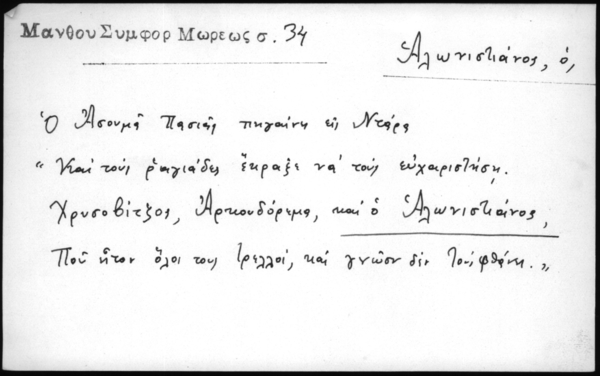 Μανθου Συμφορ Μωρεως σ. 34
Ἁλωνιστιάνος, ὁ,
Ὁ Ἀσουμᾶ Πασιᾶς πηγαίνη εἰς Ντάρα
"Καί τούς ραγιάδες ἔκραξε νά τούς εὐχαριστήση,
Χρυσοβίτζος, Ἀρκουδόρεμα, καί ὁ Ἁλωνιστιάνος,
Ποῦ ἦτον ὅλοι τους τρελλοί, καί γνῶσιν δέν τούς φθάνη."